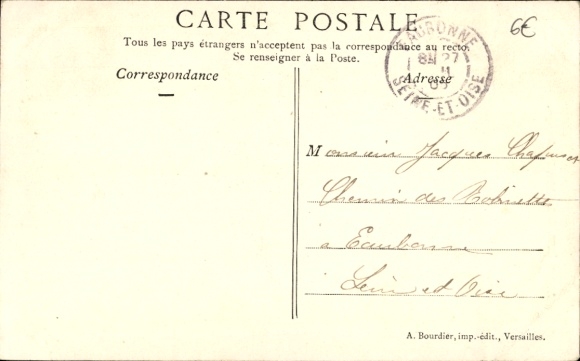 CARTE POSTALE
6€
Tous les pays étrangers n'acceptent pas la correspondance au recto.
Se renseigner à la Poste.
AUBONNE
8H 27
SEINE-ET-OISE
Correspondance
Adresse
Monsieur Jacques
Chemin des Robinettes
à Eaubonne
Seine et Oise
A. Bourdier, imp.-édit., Versailles.